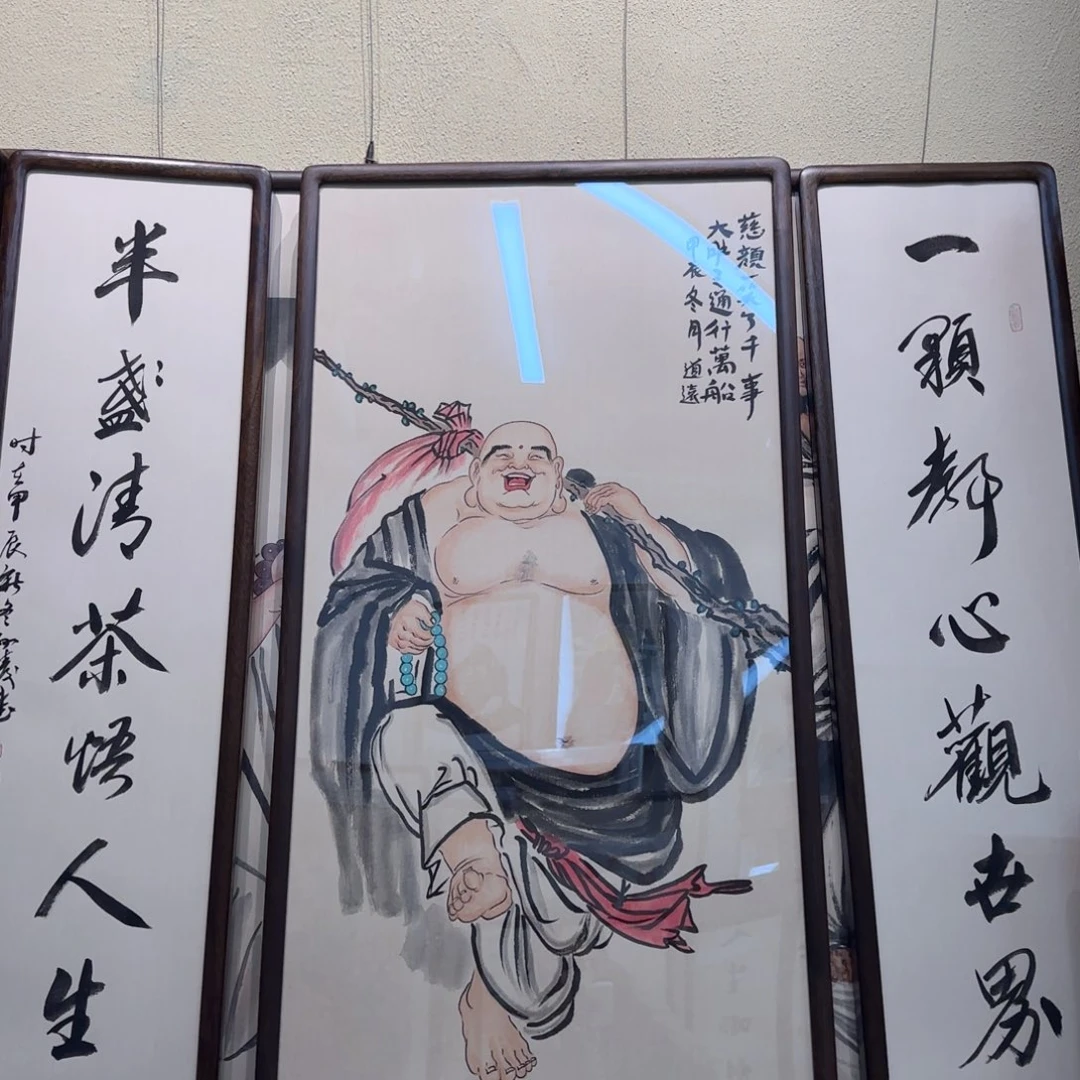 一顆靜心觀世界
慈顏一笑了千事
大肚通行萬船
甲辰冬月道遠
半盏清茶悟人生
时在甲辰